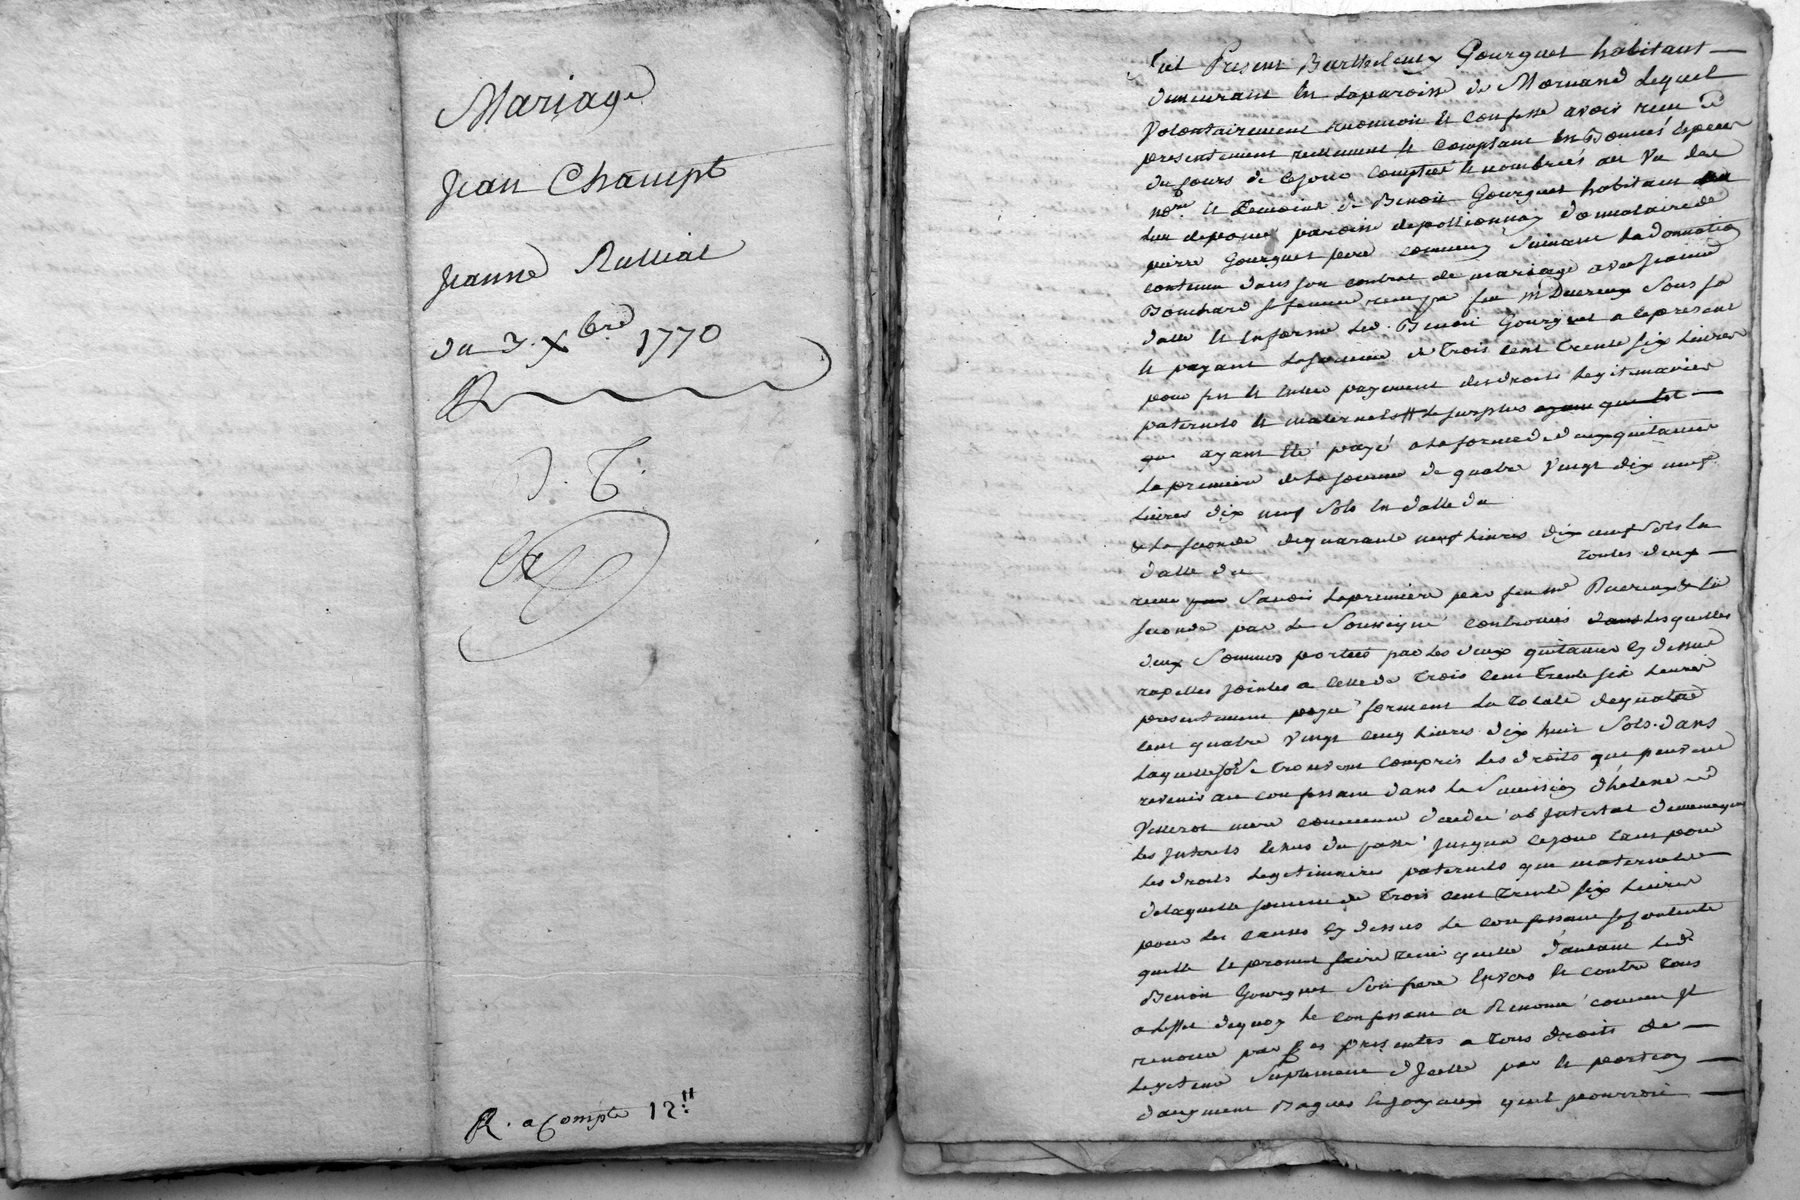 Mariage
Jean Champt
Jeanne
du 7. Xbre 1770
R. a Compte 12
fut Present Barthelemy Gourguet habitant
demeurant en la paroisse de Mornand Lequel
Volontairement et confesse avoir recu
presentement reellement et comptant en
du cours de ce jour comptées et nombrées au Vu des
nore. et Temoins de Benoit Gourguet habitant
paroisse donnataire de
pierre Gourguet pere commun Suivant la donnation
contenue dans son contrat de mariage avec
Bouchard sa femme recu par feu me Ducreux Sous sa
datte et en forme led. Benoit Gourguet a ce present
et payant la somme de Trois Cent Trente six Livres
pour fin et entier payement des droits Legitimaires
paternels et maternels Le surplus ayant
que ayant Eté payé a la forme de deux quitances
la premiere de la somme de quatre Vingt dix neuf
Livres dix neuf Sols en datte du
& la seconde de quarante neuf Livres dix neuf Sols en
datte du toutes deux
recue Savoir la premiere par feu me Ducreux & la
seconde par le Soussigné controlées Lesquelles
deux Sommes portées par les deux quitances cy dessus
rapellés jointes a celle de Trois Cent Trente six Livres
presentement payé forment la totale de quatre
Cent quatre Vingt cinq Livres dix huit Sols. dans
laquelle se trouvent compris les droits que peuvent
revenir au confessant dans la Succession d'helene
mere commune decedée ab Intestat
les Interets du passé jusqua ce jour tant pour
les droits Legitimaires paternels que maternels
de laquelle somme de Trois Cent Trente six Livres
pour les causes cy dessus le confessant se contente
quitte et promet faire tenir quitte Led.
Benoit Gourguet Son frere Envers et contre tous
a leffet de quoy le confessant a Renoncé comme Il
renonce par ces presentes a tous droits de
Legitime Suplement d'Icelle par et portion
d'augment Bagues et joyaux quil pourroit